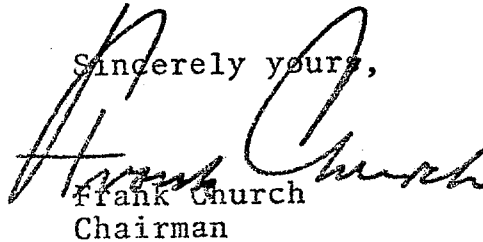 Sincerely yours,
Frank Church
Frank Church
Chairman